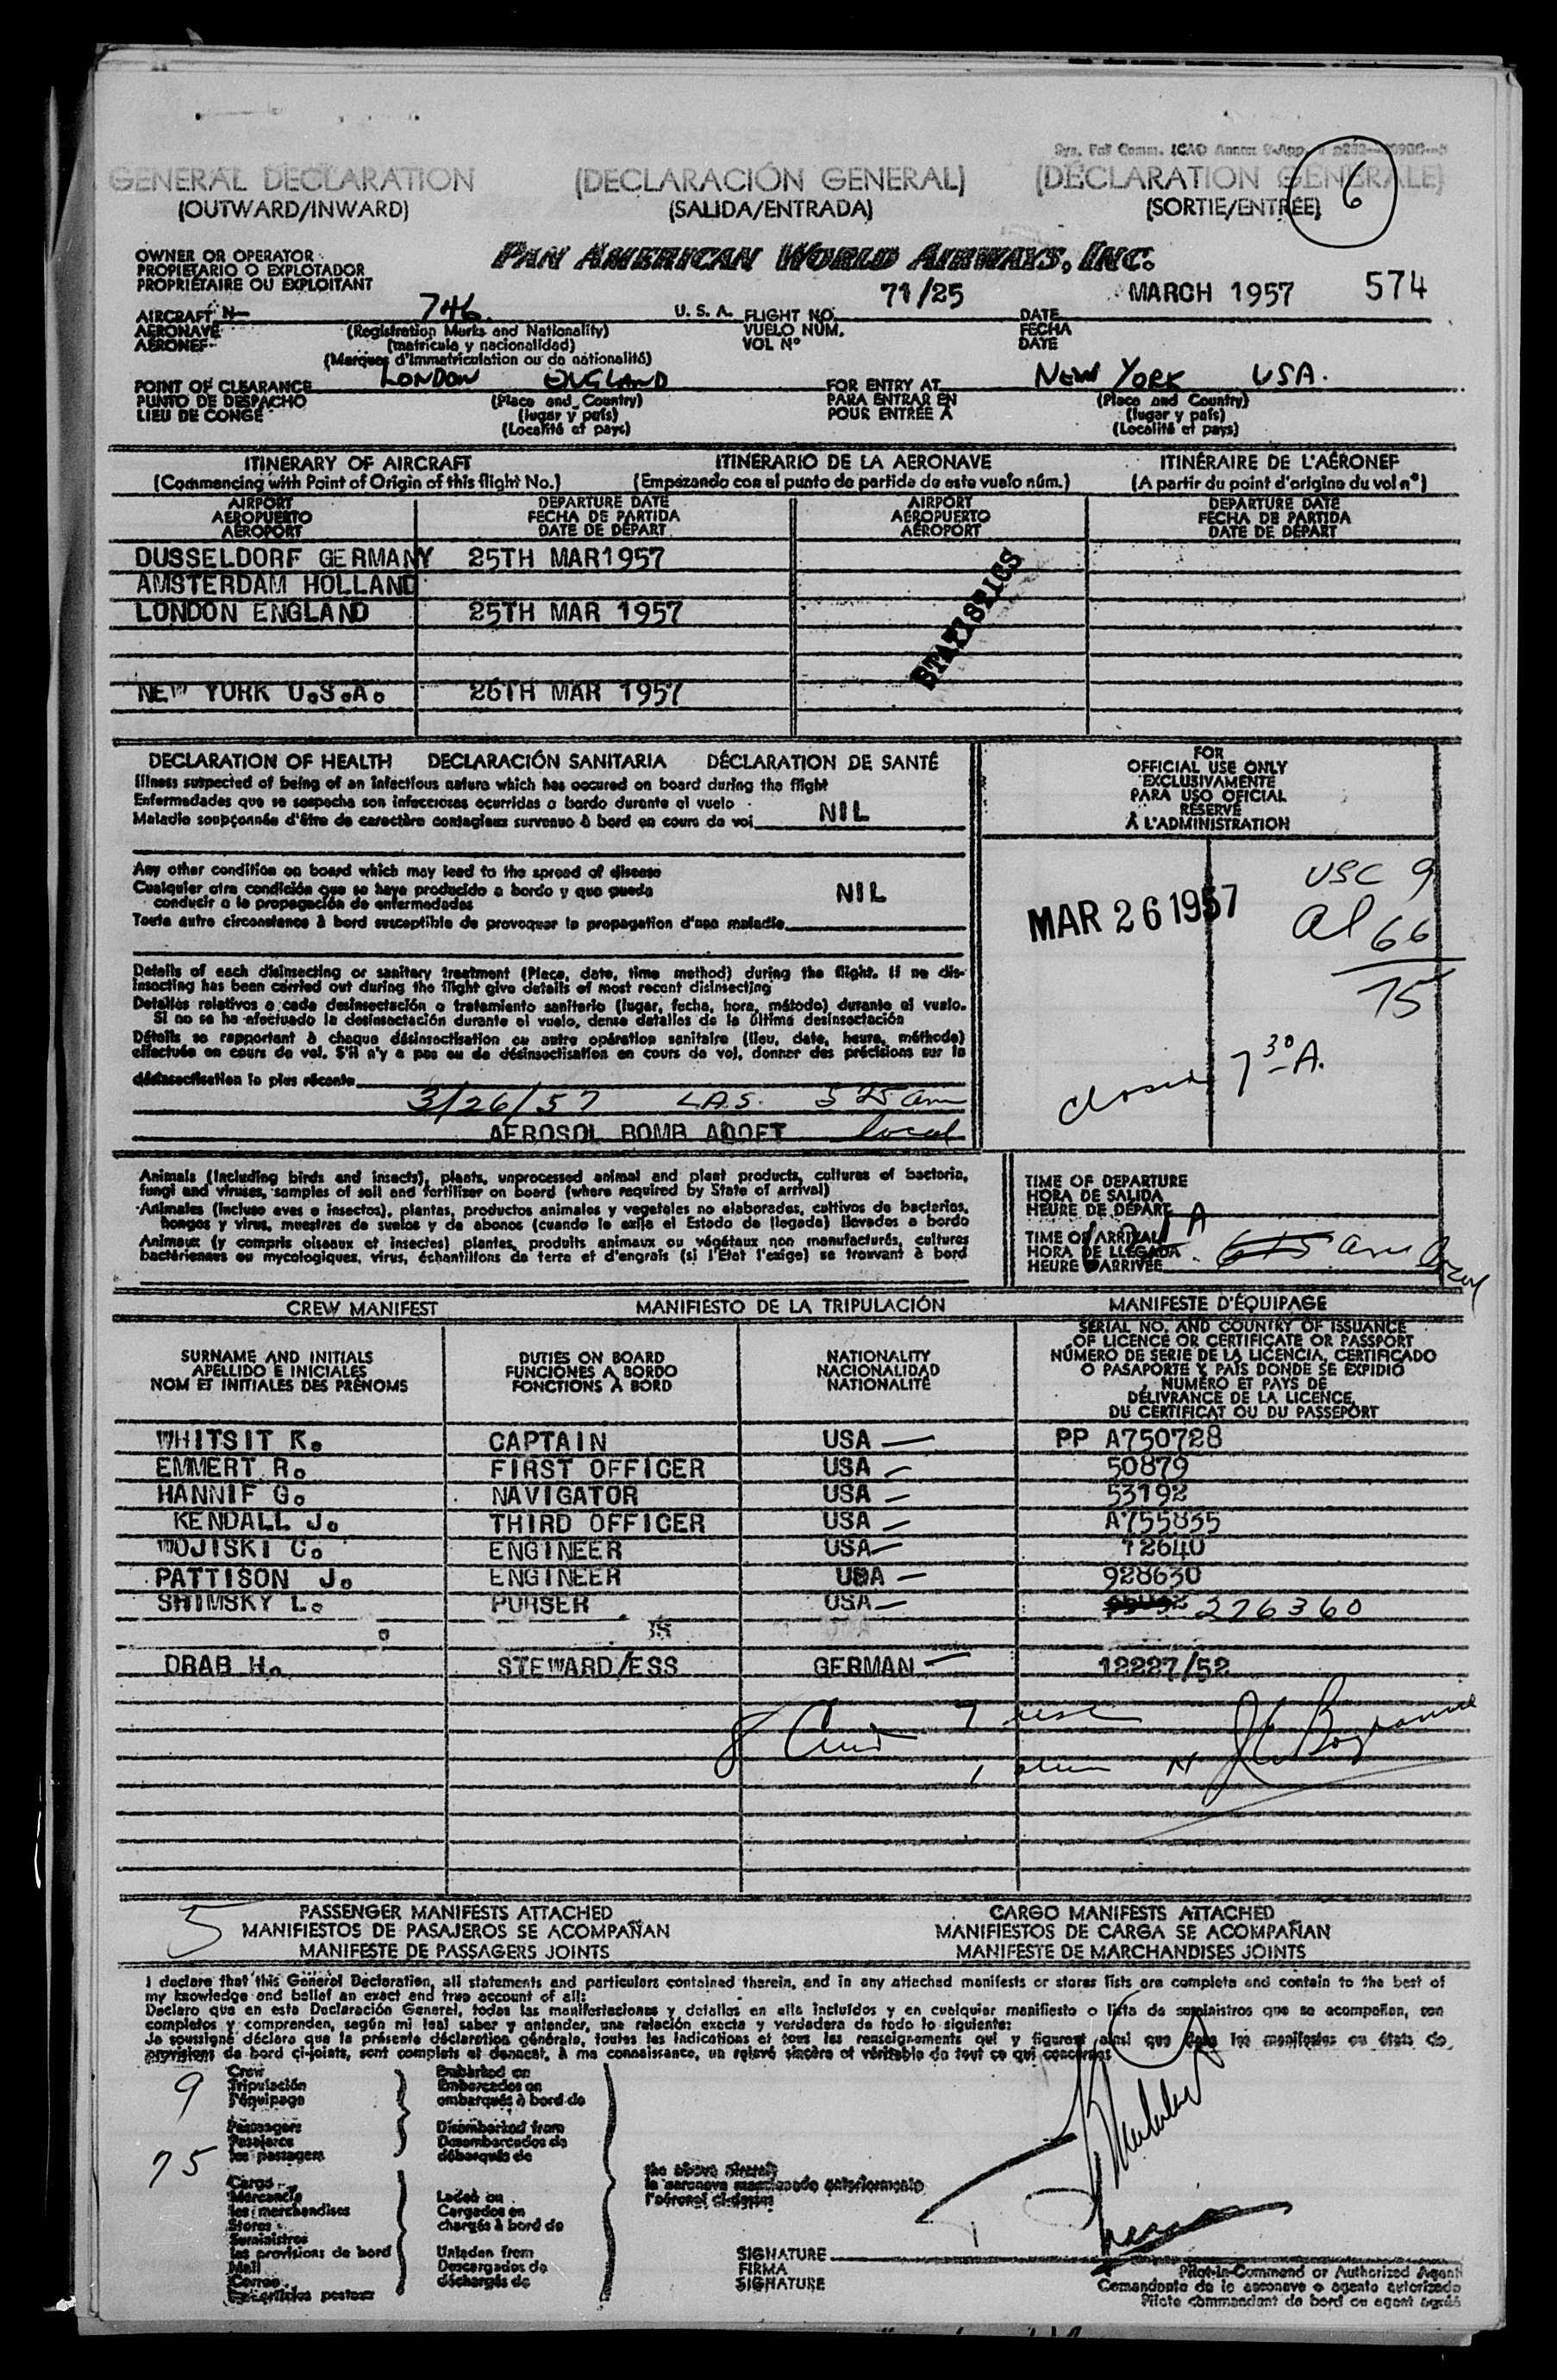 GENERAL DECLARATION (DECLARACIÓN GENERAL) (DÉCLARATION GENERALE)
(OUTWARD/INWARD) (SALIDA/ENTRADA) (SORTIE/ENTRÉE)
6
OWNER OR OPERATOR
PROPIETARIO O EXPLOTADOR
PROPRIÉTAIRE OU EXPLOITANT
PAN AMERICAN WORLD AIRWAYS, INC.
AIRCRAFT N 746 U. S. A. FLIGHT NO. 71/25 DATE MARCH 1957 574
AERONAVE (Registration Marks and Nationality) VUELO NÚM. FECHA
AÉRONEF (matrícula y nacionalidad) VOL Nº DATE
(Marques d'immatriculation ou de nationalité)
POINT OF CLEARANCE LONDON ENGLAND FOR ENTRY AT NEW YORK USA.
PUNTO DE DESPACHO (Place and Country) PARA ENTRAR EN (Place and Country)
LIEU DE CONGÉ (lugar y país) POUR ENTRÉE À (lugar y país)
(Localité et pays) (Localité et pays)
ITINERARY OF AIRCRAFT ITINERARIO DE LA AERONAVE ITINÉRAIRE DE L'AÉRONEF
(Commencing with Point of Origin of this flight No.) (Empezando con el punto de partida de este vuelo núm.) (A partir du point d'origine du vol nº)
AIRPORT DEPARTURE DATE AIRPORT DEPARTURE DATE
AEROPUERTO FECHA DE PARTIDA AEROPUERTO FECHA DE PARTIDA
AÉROPORT DATE DE DÉPART AÉROPORT DATE DE DÉPART
DUSSELDORF GERMANY 25TH MAR1957
AMSTERDAM HOLLAND
LONDON ENGLAND 25TH MAR 1957
STATISTICS
NEW YORK U.S.A. 26TH MAR 1957
DECLARATION OF HEALTH DECLARACIÓN SANITARIA DÉCLARATION DE SANTÉ
Illness suspected of being of an infectious nature which has occured on board during the flight
Enfermedades que se sospecha son infecciosas ocurridas a bordo durante el vuelo
Maladie soupçonnée d'être de caractère contagieux survenue à bord en cours de vol NIL
Any other condition on board which may lead to the spread of disease
Cualquier otra condición que se haya producido a bordo y que pueda
conducir a la propagación de enfermedades NIL
Toute autre circonstance à bord susceptible de provoquer la propagation d'une maladie
Details of each disinsecting or sanitary treatment (Place, date, time method) during the flight. If no dis-
insecting has been carried out during the flight give details of most recent disinsecting
Detalles relativos a cada desinsectación o tratamiento sanitario (lugar, fecha, hora, método) durante el vuelo.
Si no se ha efectuado la desinsectación durante el vuelo, dense detalles de la última desinsectación
Détails se rapportant à chaque désinsectisation ou autre opération sanitaire (lieu, date, heure, méthode)
effectuée en cours de vol. S'il n'y a pas eu de désinsectisation en cours de vol, donner des précisions sur la
désinsectisation la plus récente
3/26/57 L.A.S. 5 25 am
AEROSOL BOMB local
FOR
OFFICIAL USE ONLY
EXCLUSIVAMENTE
PARA USO OFICIAL
RÉSERVÉ
À L'ADMINISTRATION
USC 9
MAR 26 1957
al 66
75
closed 7 30 A.
Animals (including birds and insects), plants, unprocessed animal and plant products, cultures of bacteria,
fungi and viruses, samples of soil and fertilizer on board (where required by State of arrival)
Animales (incluso aves e insectos), plantas, productos animales y vegetales no elaborados, cultivos de bacterias,
hongos y virus, muestras de suelos y de abonos (cuando lo exija el Estado de llegada) llevados a bordo
Animaux (y compris oiseaux et insectes) plantes, produits animaux ou végétaux non manufacturés, cultures
bactériennes ou mycologiques, virus, échantillons de terre et d'engrais (si l'Etat l'exige) se trouvant à bord
TIME OF DEPARTURE
HORA DE SALIDA
HEURE DE DÉPART
TIME OF ARRIVAL
HORA DE LLEGADA 615 am
HEURE D'ARRIVÉE
CREW MANIFEST MANIFIESTO DE LA TRIPULACIÓN MANIFESTE D'ÉQUIPAGE
SURNAME AND INITIALS
APELLIDO E INICIALES
NOM ET INITIALES DES PRÉNOMS
DUTIES ON BOARD
FUNCIONES A BORDO
FONCTIONS À BORD
NATIONALITY
NACIONALIDAD
NATIONALITÉ
SERIAL NO. AND COUNTRY OF ISSUANCE
OF LICENCE OR CERTIFICATE OR PASSPORT
NÚMERO DE SERIE DE LA LICENCIA, CERTIFICADO
O PASAPORTE Y PAÍS DONDE SE EXPIDIÓ
NUMÉRO ET PAYS DE
DÉLIVRANCE DE LA LICENCE,
DU CERTIFICAT OU DU PASSEPORT
WHITSIT R. CAPTAIN USA PP A750728
EMMERT R. FIRST OFFICER USA 50879
HANNIF G. NAVIGATOR USA 53192
KENDALL J. THIRD OFFICER USA A755835
WOJTSKI C. ENGINEER USA 12640
PATTISON J. ENGINEER USA 928630
SHIMSKY L. PURSER USA 276360
DRAB H. STEWARD/ESS GERMAN 12227/52
8 7
1
5
PASSENGER MANIFESTS ATTACHED CARGO MANIFESTS ATTACHED
MANIFIESTOS DE PASAJEROS SE ACOMPAÑAN MANIFIESTOS DE CARGA SE ACOMPAÑAN
MANIFESTE DE PASSAGERS JOINTS MANIFESTE DE MARCHANDISES JOINTS
I declare that this General Declaration, all statements and particulars contained therein, and in any attached manifests or stores lists are complete and contain to the best of
my knowledge and belief an exact and true account of all:
Declaro que en esta Declaración General, todas las manifestaciones y detalles en ella incluídos y en cualquier manifiesto o lista de suministros que se acompañan, son
completos y comprenden, según mi leal saber y entender, una relación exacta y verdadera de todo lo siguiente:
Je soussigné déclare que la présente déclaration générale, toutes les indications et tous les renseignements qui y figurent ainsi que dans les manifestes ou états de
provisions de bord ci-joints, sont complets et donnent, à ma connaissance, un relevé sincère et véritable de tout ce qui concerne:
9
Crew
Tripulación
l'équipage
Embarked on
Embarcados en
embarqués à bord de
75
Passengers
Pasajeros
les passagers
Disembarked from
Desembarcados de
débarqués de
Cargo
Mercancía
les merchandises
Stores
Suministros
les provisions de bord
Mail
Correo
Laded on
Cargados en
chargés à bord de
Unladen from
Descargados de
déchargés de
the above aircraft
la aeronave mencionada anteriormente
l'aéronef ci-dessus
SIGNATURE
FIRMA
SIGNATURE
Pilot-in-Command or Authorized Agent
Comandante de la aeronave o agente autorizado
Pilote commandant de bord ou agent agréé